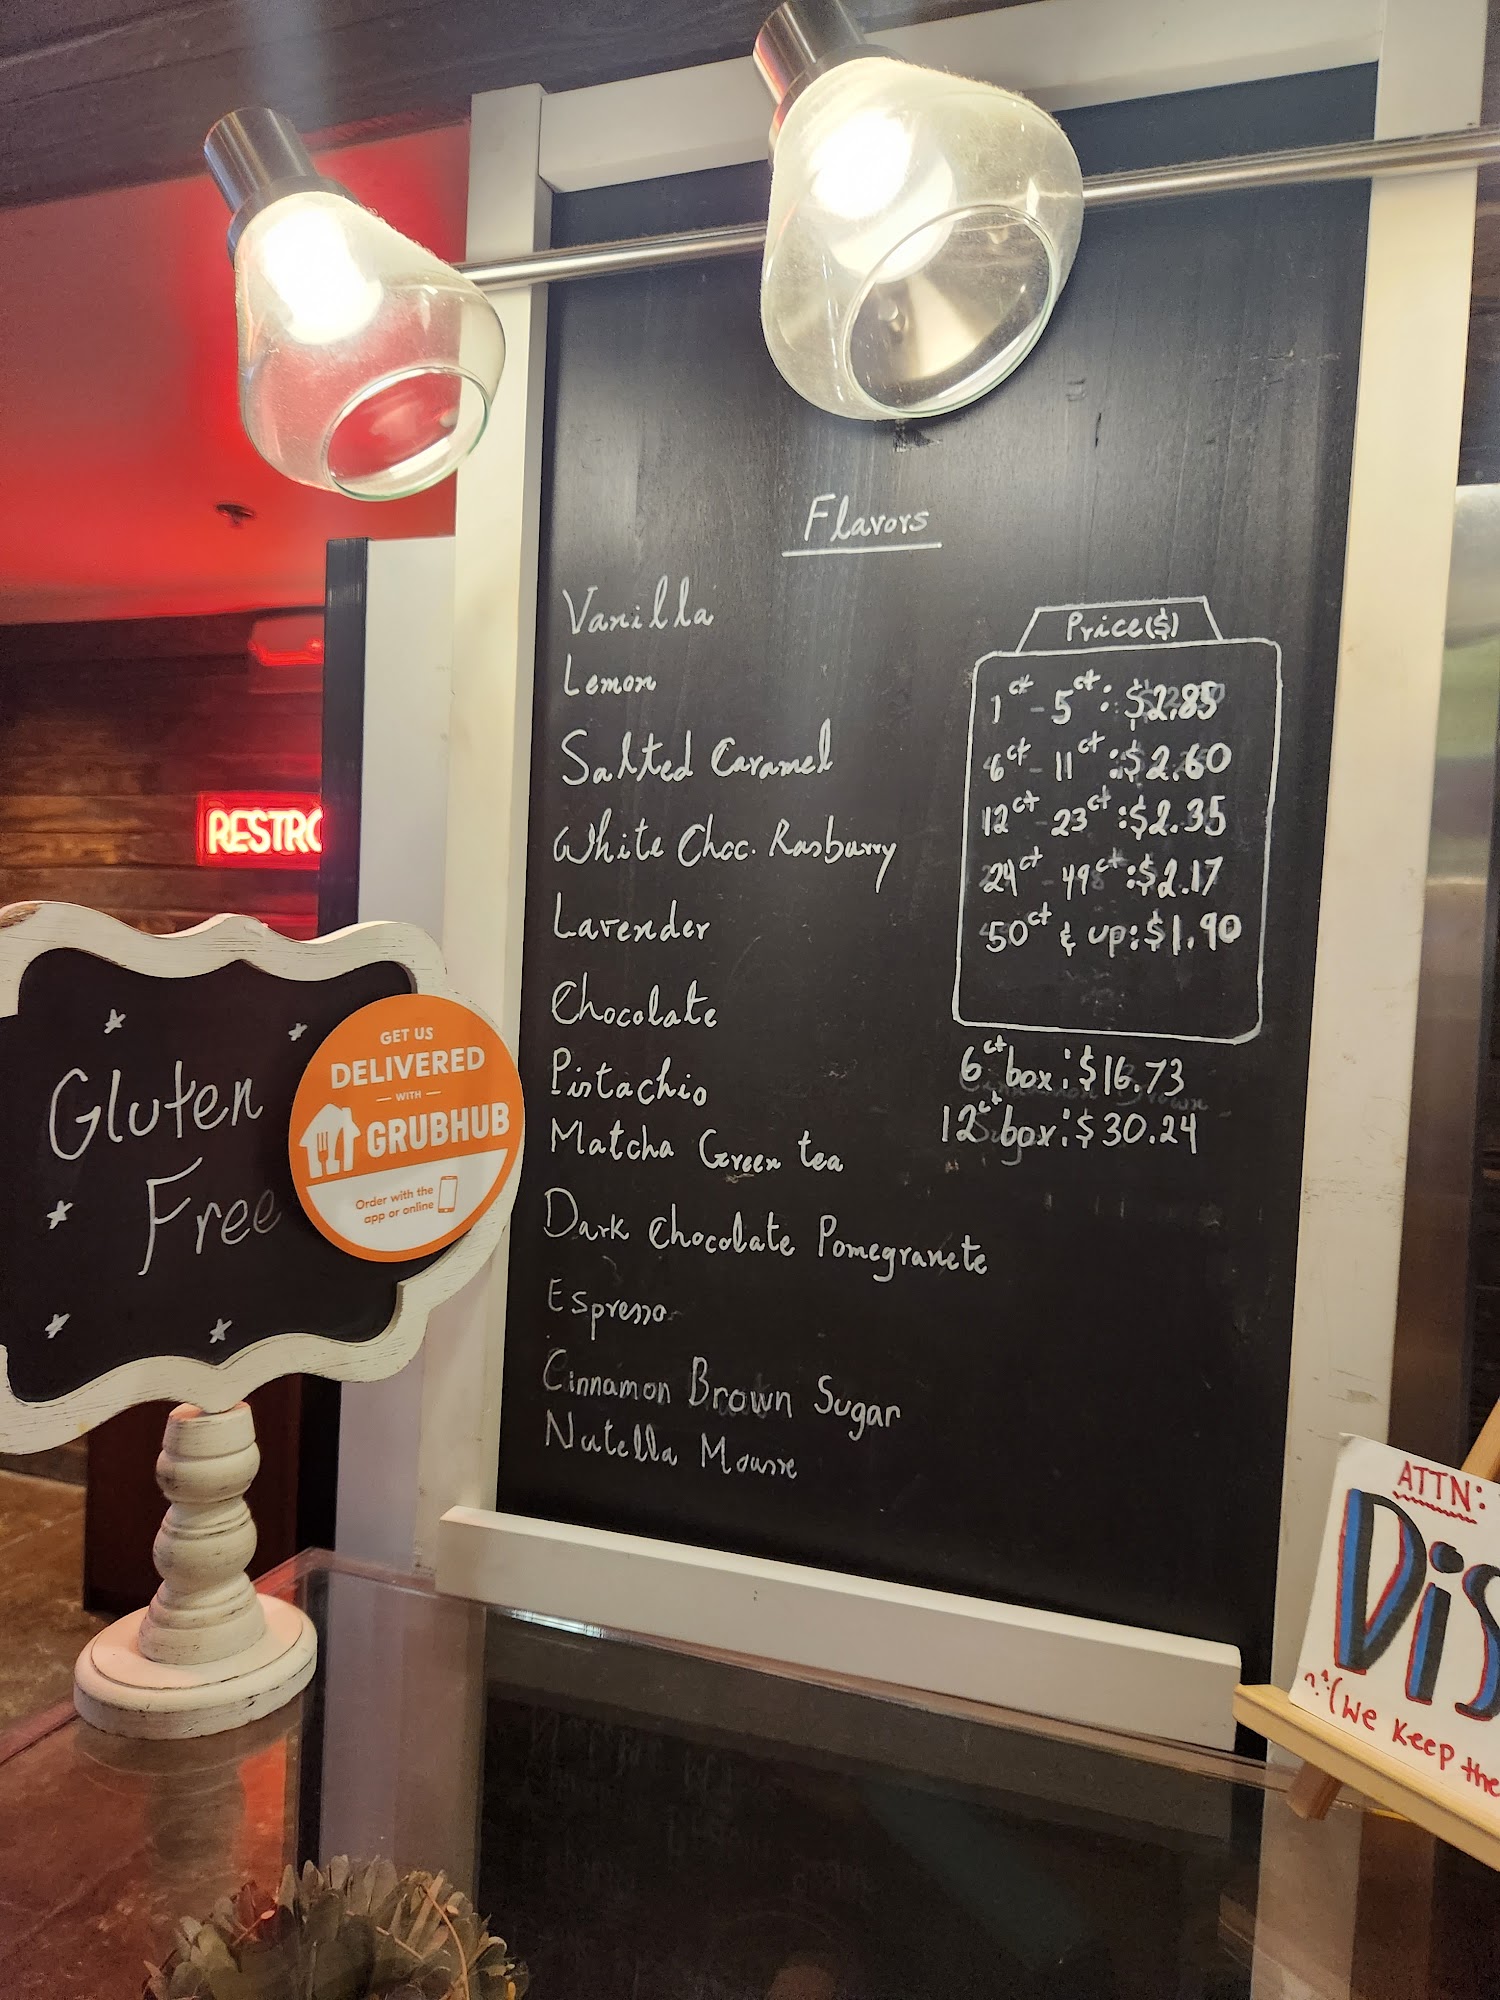 Flavors
Vanilla
Lemon
Salted Caramel
White Choc. Rasburry
Lavender
Chocolate
Pistachio
Matcha Green tea
Dark Chocolate Pomegranete
Espresso
Cinnamon Brown Sugar
Nutella Mousse
Price($)
1ct - 5ct: $2.85
6ct - 11ct: $2.60
12ct - 23ct: $2.35
24ct - 49ct: $2.17
50ct & up: $1.90
6ct box: $16.73
12ct box: $30.24
RESTRO
Gluten
Free
GET US
DELIVERED
— WITH —
GRUBHUB
Order with the
app or online
ATTN:
Dis
(We Keep the